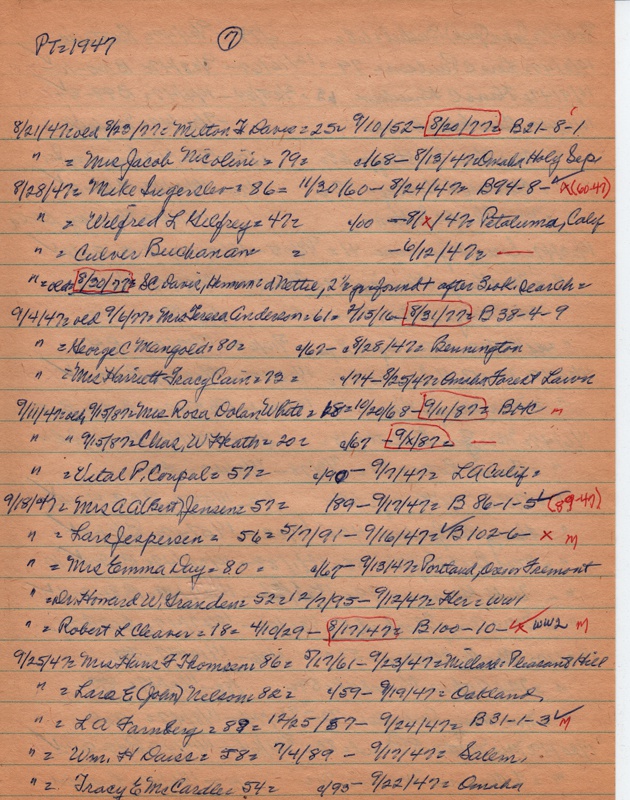 PT=1947 7
8/21/47= old 8/23/77= Milton H Davis = 25= 9/10/52- 8/20/77= B21-8-1
" = Mrs Jacob Nicolini = 79= c/68- 8/13/47= Omaha Holy Sep
8/28/47= Mike Ingersler= 86= 11/30/60- 8/24/47= B94-8- x (60-47)
" = Wilfred L Gilfrey= 47= c/00 -8/x/47= Petaluma, Calif
" = Culver Buchanan = -6/12/47= —
"= old 8/30/77= SC Davis, Herman= d Nettie, 2 after 3rok search=
9/4/47= old 9/6/77= Mrs Teresa Anderson= 61= 2/15/16- 8/31/77= B 38-4-9
" = George C Mangold= 80= c/67- 8/28/47= Bennington
" = Mrs Harriett Tracy Cain= 73= c/74- 8/25/47= Omaha Forest Lawn
9/11/47= old 9/15/87= Mrs Rosa Dolan White= 18= 10/20/68- 9/11/87= BHC m
" " 9/15/87= Chas. W Heath= 20= c/67 - 9/x/87= —
" = Vital P. Coupal= 57= c/90- 9/7/47= LA Calif=
9/18/47= Mrs AA (Bert) Jensen= 57= 189- 9/17/47= B 86-1-5 (89-47)
" = Lars Jespersen = 56= 5/7/91- 9/16/47= B 102-6- x m
" = Mrs Emma Day= 80= c/67- 9/13/47= Portland, Oreor Fremont
" = Dr. Howard W. Granden= 52= 12/7/95- 9/12/47= Her= WW1
" = Robert L Cleaver= 18= 4/10/29- 8/17/47= B100-10-4x WW2 m
9/25/47= Mrs Hans F Thomsen 86= 5/17/61- 9/23/47= Millard= Pleasant Hill
" = Lars E (John) Nelson= 88= c/59- 9/19/47= Oakland
" = LA Farnberg= 89= 12/25/57- 9/24/47= B31-1-3 m
" = Wm. H Daiss= 58= 7/4/89 - 9/17/47= Salem,
" = Tracy E McCardle= 54= c/93- 9/22/47= Omaha